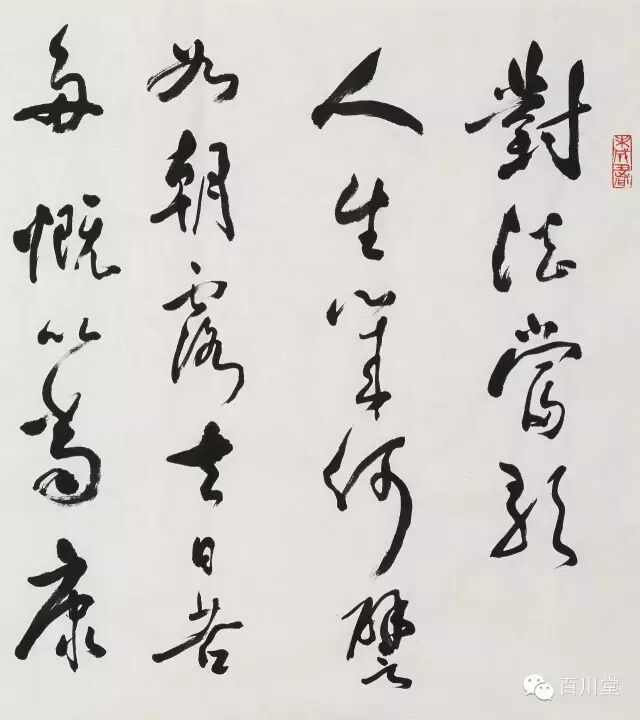 對酒當歌
人生幾何譬
如朝露去日苦
慨當康
百川堂